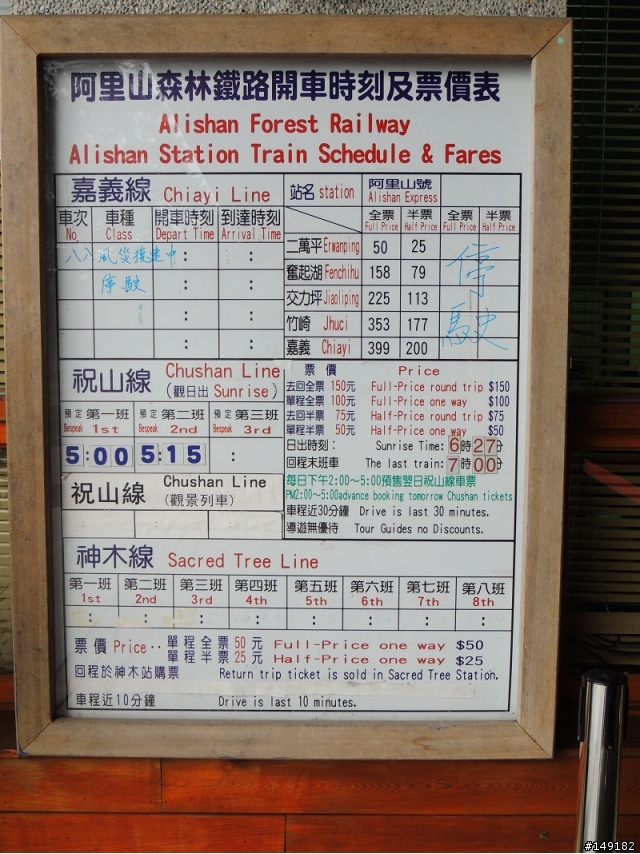 阿里山森林鐵路開車時刻及票價表
Alishan Forest Railway
Alishan Station Train Schedule & Fares
嘉義線 Chiayi Line
車次 車種 開車時刻 到達時刻
No. Class Depart Time Arrival Time
八八風災復建中 : :
停駛 : :
: :
: :
站名 station 阿里山號
Alishan Express
全票 半票 全票 半票
Full Price Half Price Full Price Half Price
二萬平 Erwanping 50 25
奮起湖 Fenchihu 158 79
交力坪 Jiaoliping 225 113
竹崎 Jhuci 353 177
嘉義 Chiayi 399 200
停駛
祝山線 Chushan Line
(觀日出 Sunrise)
預定 第一班 預定 第二班 預定 第三班
Bespeak 1st Bespeak 2nd Bespeak 3rd
5:00 5:15 :
祝山線 Chushan Line
(觀景列車)
票價 Price
去回全票 150元 Full-Price round trip $150
單程全票 100元 Full-Price one way $100
去回半票 75元 Half-Price round trip $75
單程半票 50元 Half-Price one way $50
日出時刻: Sunrise Time: 6時27分
回程末班車 The last train: 7時00分
每日下午2:00～5:00預售翌日祝山線車票
PM2:00～5:00advance booking tomorrow Chushan tickets
車程近30分鐘 Drive is last 30 minutes.
導遊無優待 Tour Guides no Discounts.
神木線 Sacred Tree Line
第一班 第二班 第三班 第四班 第五班 第六班 第七班 第八班
1st 2nd 3rd 4th 5th 6th 7th 8th
: : : : : : : :
票價 Price‥ 單程全票 50元 Full-Price one way $50
單程半票 25元 Half-Price one way $25
回程於神木站購票 Return trip ticket is sold in Sacred Tree Station.
車程近10分鐘 Drive is last 10 minutes.
#149182